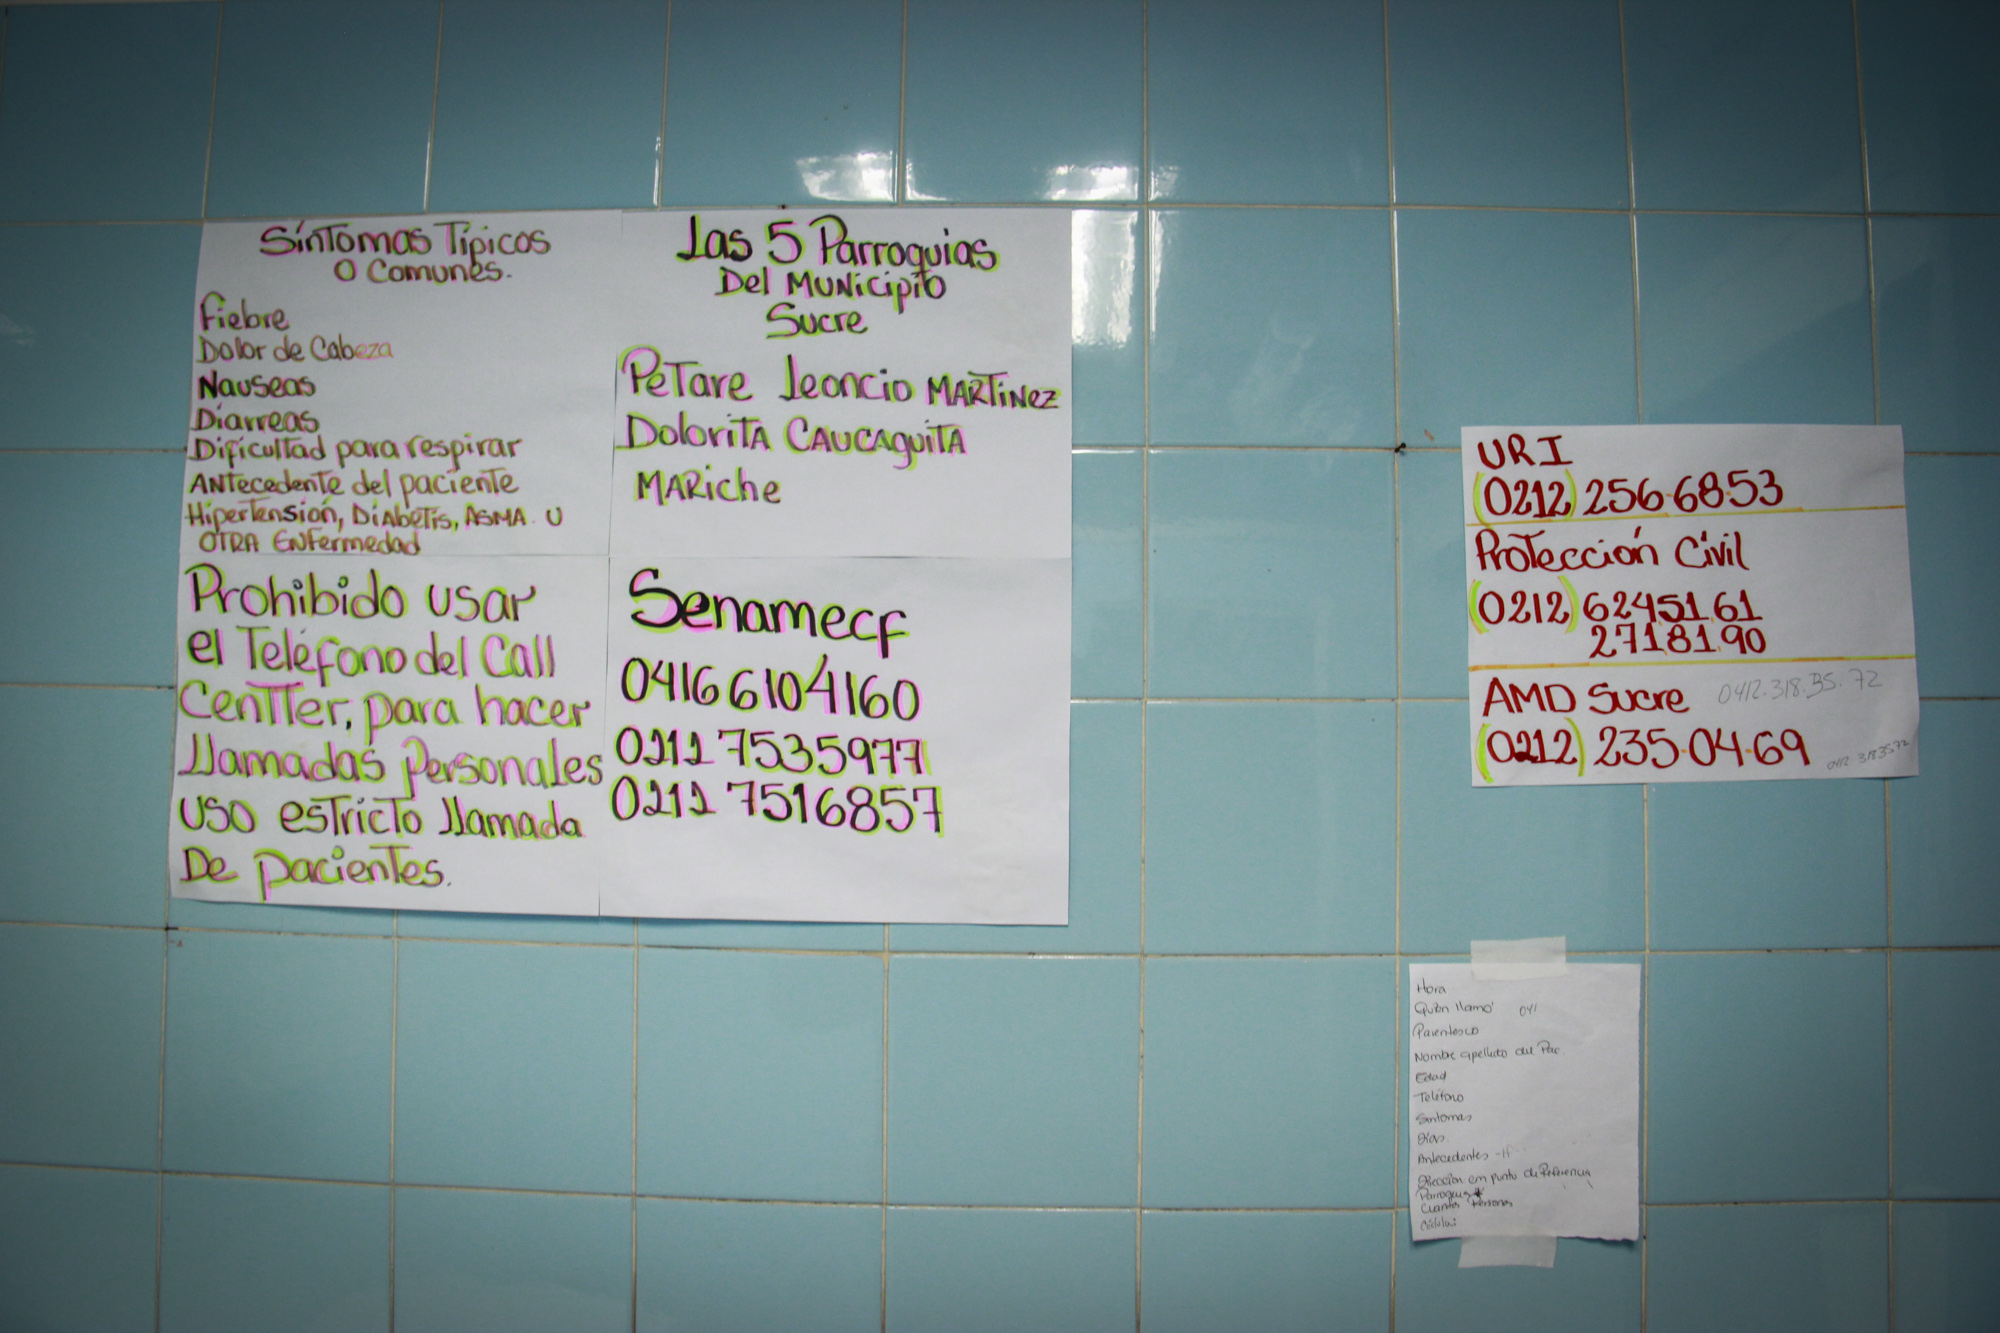 Síntomas Típicos
O Comunes.
Fiebre
Dolor de Cabeza
Nauseas
Diarreas
Dificultad para respirar
Antecedente del paciente
Hipertensión, Diabetis, ASMA. U
OTRA Enfermedad
Las 5 Parroquias
Del Municipio
Sucre
Petare Leoncio MARTINez
Dolorita CAUCAguita
MARiche
Prohibido usar
el Teléfono del Call
Centter, para hacer
llamadas personales
uso estricto llamada
De pacientes.
Senamecf
0416 6104160
0212 7535977
0212 7516857
URI
(0212) 256.68.53
Protección Civil
(0212) 624.51.61
271.81.90
AMD Sucre 0412.318.35.72
(0212) 235.04.69 0412.3183572
Hora
Quién llamó 041
Parentesco
Nombre apellido del Pac.
Edad
Teléfono
Sintomas
Días
Antecedentes
Dirección em punto de Referencia
Parroquia
Cuantas Personas
Cédula: